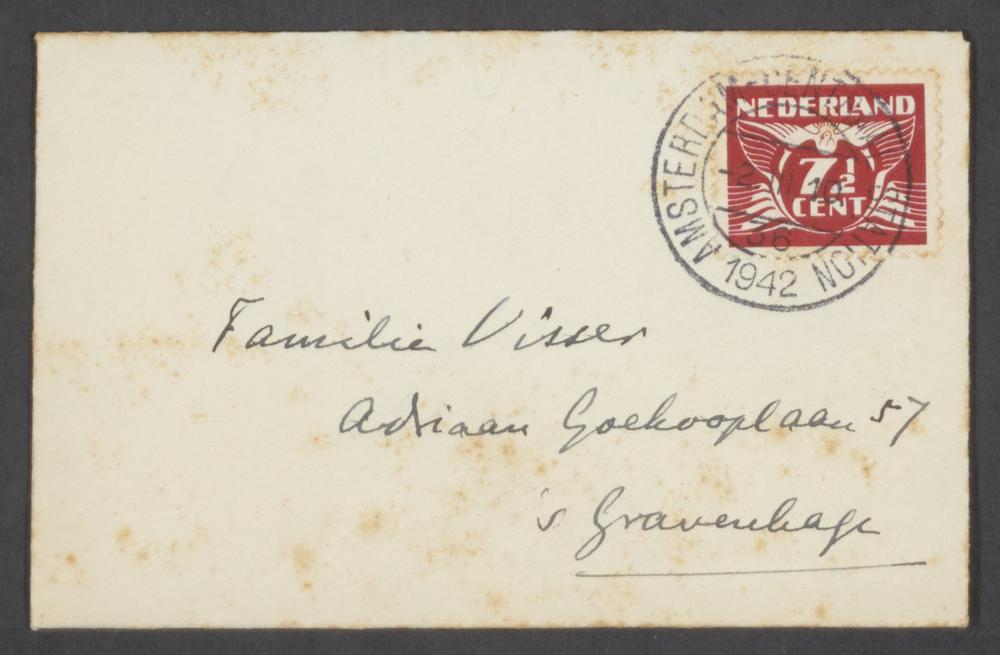 NEDERLAND
7½
CENT
AMSTERDAM-CENTRAAL STATION
1942
Familie Visser
Adriaan Goekooplaan 57
's Gravenhage